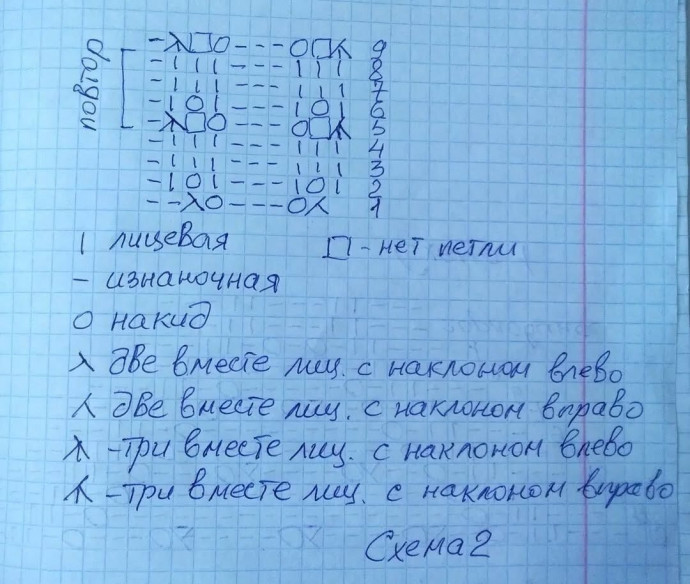 - ⅄ □ O - - - O □ K 9
- | | | - - - | | | 8
- | | | - - - | | | 7
- | O | - - - | O | 6
- ⅄ □ O - - - O □ K 5
- | | | - - - | | | 4
- | | | - - - | | | 3
- | O | - - - | O | 2
- - λ O - - - O ⅄ 1
повтор
| лицевая □ - нет петли
- изнаночная
O накид
λ две вместе лиц. с наклоном влево
⅄ две вместе лиц. с наклоном вправо
⅄ - три вместе лиц. с наклоном влево
K - три вместе лиц. с наклоном вправо
Схема 2